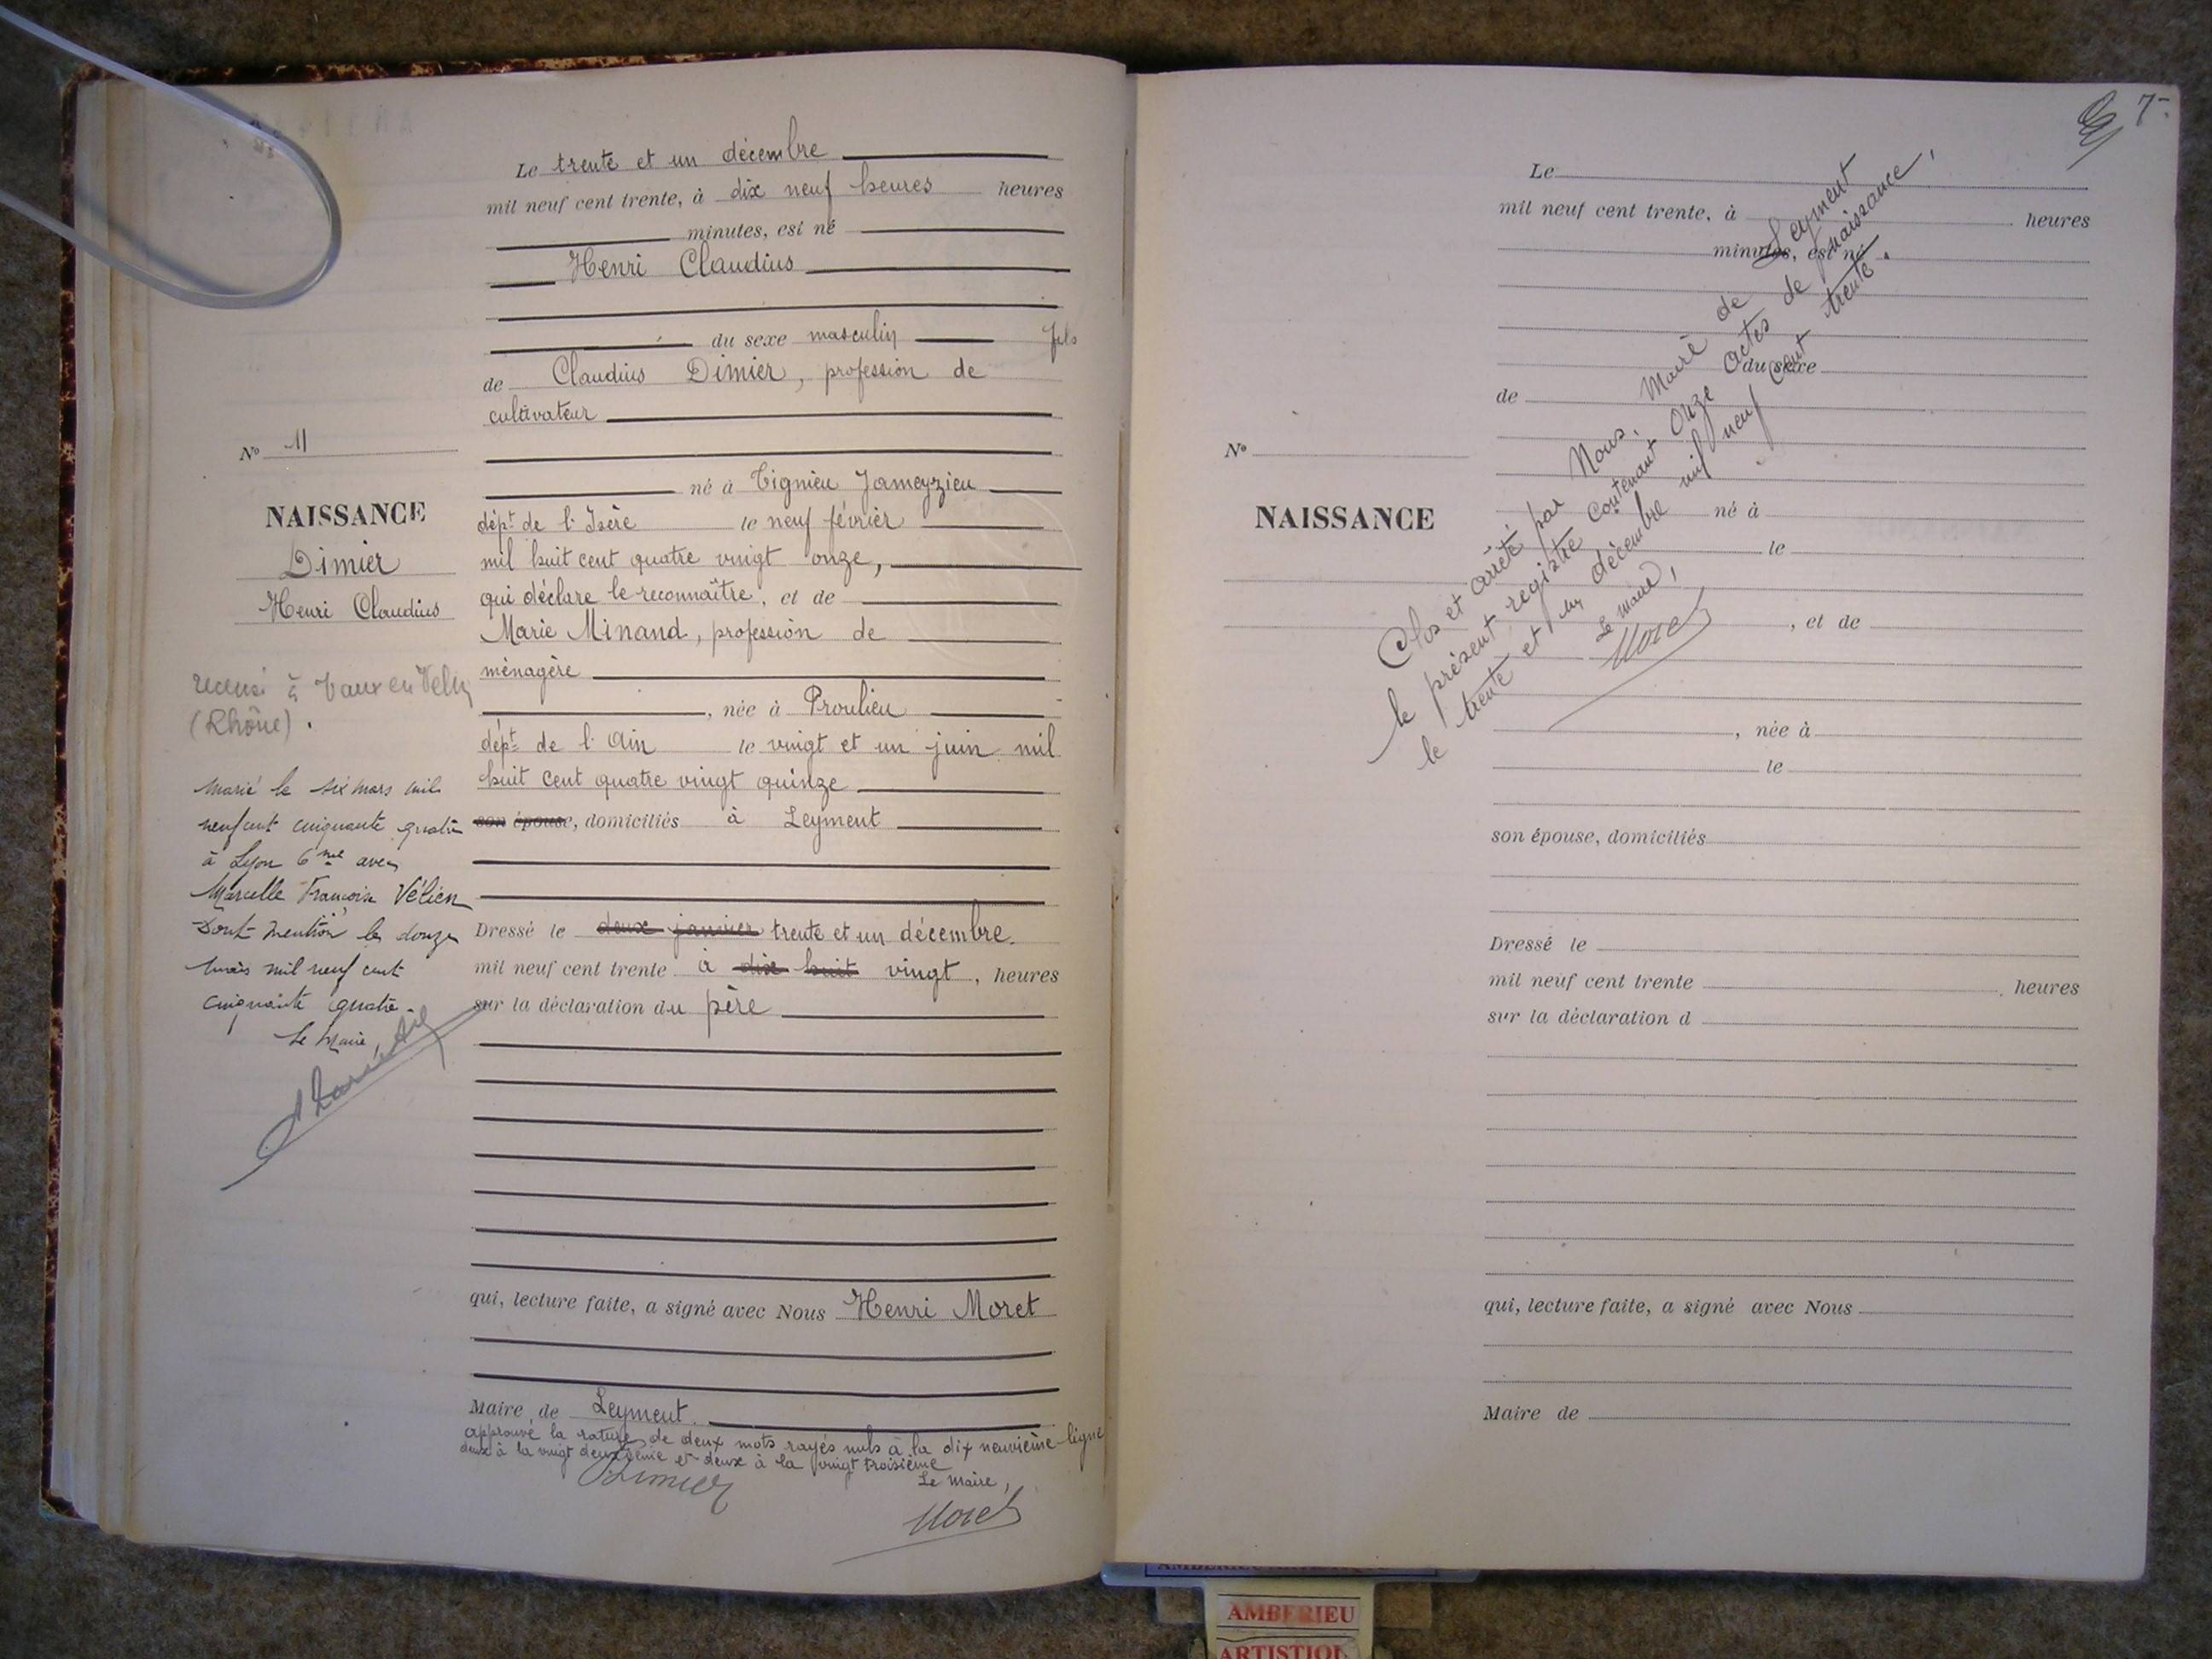 Le trente et un décembre
mil neuf cent trente, à dix neuf heures heures
minutes, est né
Henri Claudius
du sexe masculin fils
de Claudius Dimier, profession de
cultivateur
né à Tignieu Jameyzieu
dépt de l'Isère le neuf février
mil huit cent quatre vingt onze,
qui déclare le reconnaître, et de
Marie Minand, profession de
ménagère
, née à Proulieu
dépt de l'Ain le vingt et un juin mil
huit cent quatre vingt quinze
son épouse, domiciliés à Leyment
Dressé le deux janvier trente et un décembre.
mil neuf cent trente à dix huit vingt, heures
sur la déclaration du père
qui, lecture faite, a signé avec Nous Henri Moret
Maire de Leyment.
approuvé la rature de deux mots rayés nuls à la dix neuvième ligne
deux à la vingt deuxième et deux à la vingt troisième
Le Maire,
Dimier
Moret
No 11
NAISSANCE
Dimier
Henri Claudius
recensé à Vaux en Velin
(Rhône).
Marié le six mars mil
neuf cent cinquante quatre
à Lyon 6me avec
Marcelle Françoise Vélien
Dont mention le douze
mars mil neuf cent
cinquante quatre.
Le Maire,
7-
Le
mil neuf cent trente, à heures
minutes, est né
du sexe
de
No
NAISSANCE
né à
le
, et de
, née à
le
son épouse, domiciliés
Dressé le
mil neuf cent trente heures
sur la déclaration d
qui, lecture faite, a signé avec Nous
Maire de
Clos et arrêté par Nous, Maire de Leyment
le présent registre contenant onze actes de naissance,
le trente et un décembre mil neuf cent trente.
Le Maire,
Moret
AMBERIEU
ARTISTIQU